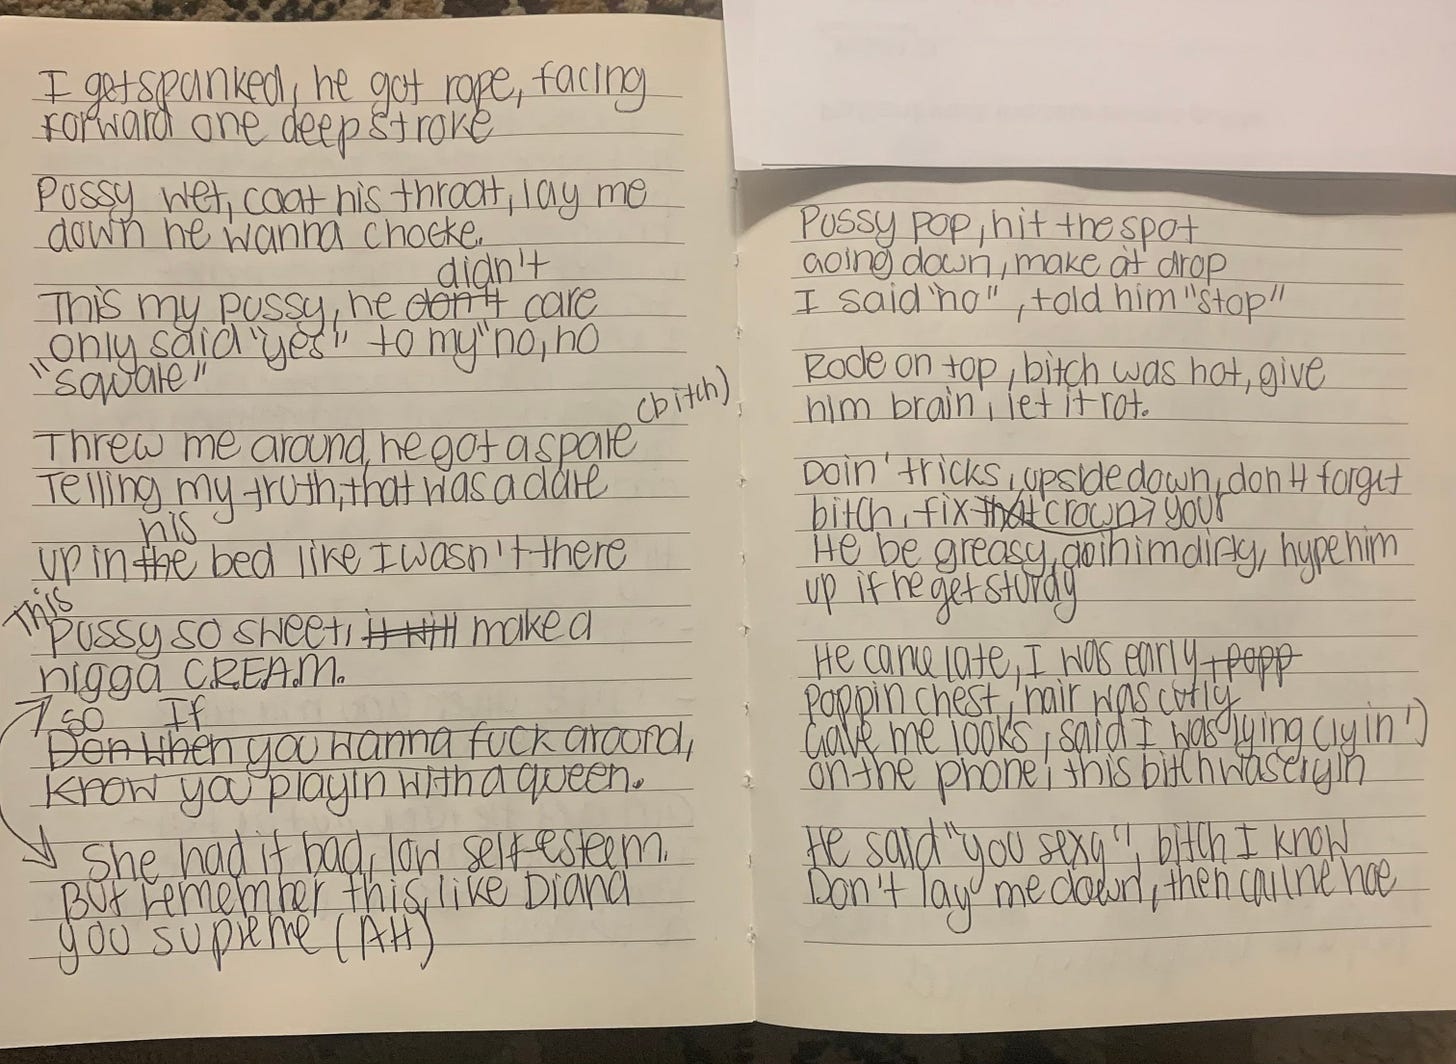 I get spanked, he got rope, facing
forward one deep stroke
Pussy wet, coat his throat, lay me
down he wanna chocke.
didn't
This my pussy, he don't care
only said "yes" to my "no, no
"square"
(bitch)
Threw me around, he got a spare
Telling my truth, that was a dare
his
up in the bed like I wasn't there
This
pussy so sweet, it will make a
nigga C.R.E.A.M.
so If
Don when you wanna fuck around,
know you playin with a queen.
She had it bad, low self-esteem.
But remember this, like Diana
you supreme (AH)
Pussy pop, hit the spot
going down, make it drop
I said "no", told him "stop"
Rode on top, bitch was hot, give
him brain, let it rot.
Doin' tricks, upside down, don't forget
bitch, fix that crown > your
He be greasy, doin him dirty, hype him
up if he get sturdy
He came late, I was early, +popp
poppin chest, hair was curly
Gave me looks, said I was lying (lyin')
on the phone, this bitch was cryin
He said "you sexy", bitch I know
Don't lay me down, then call me hoe